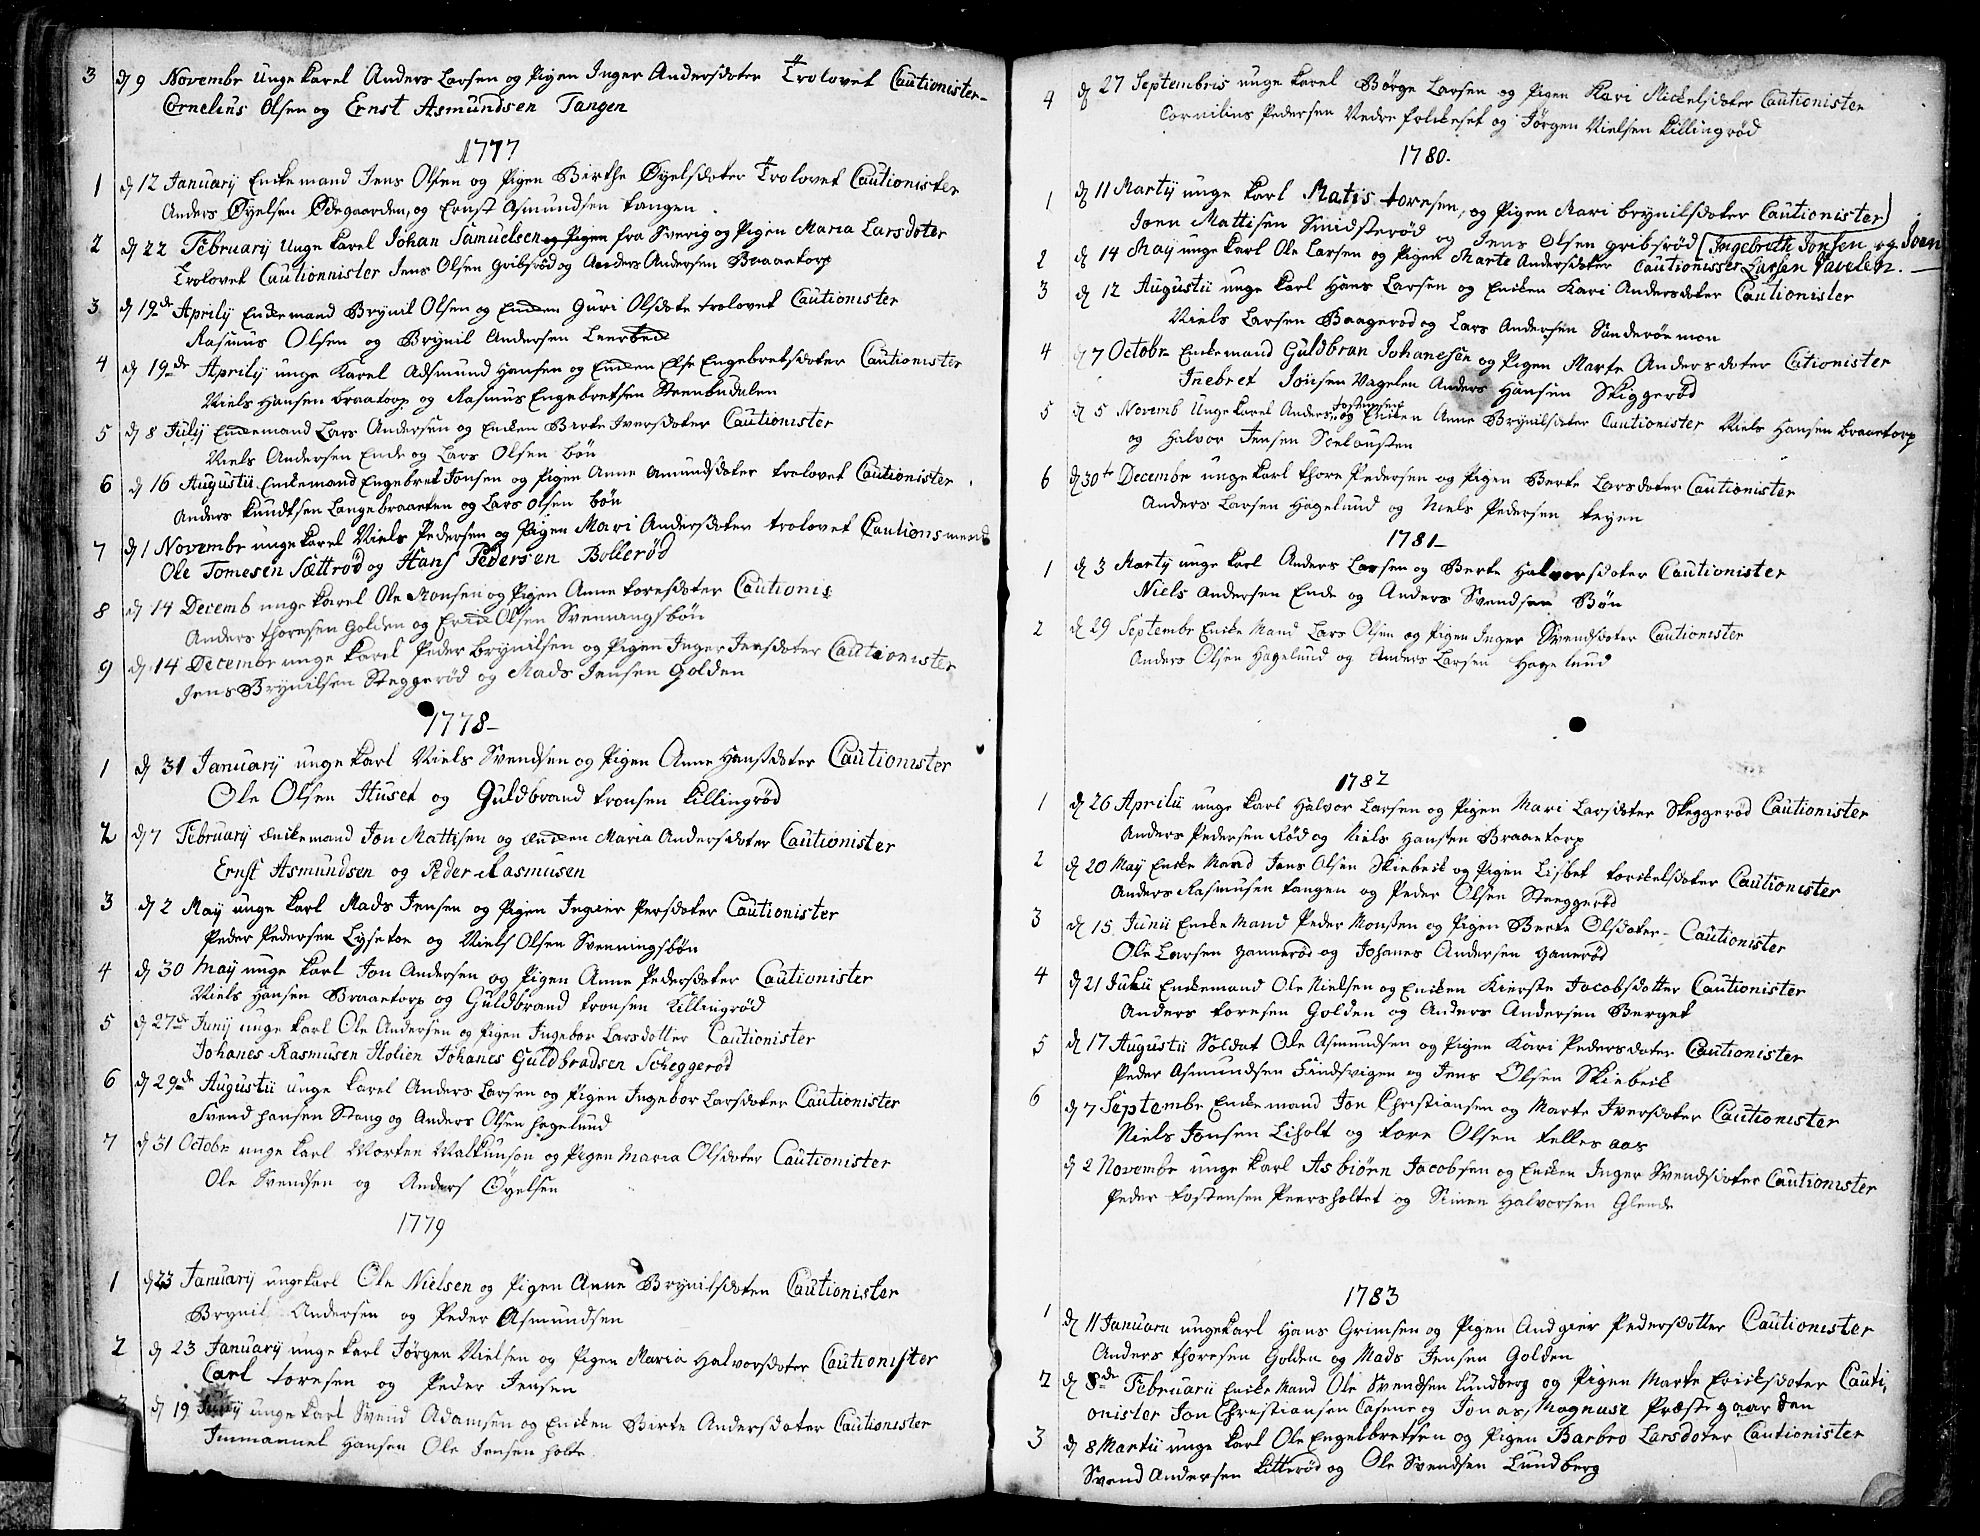 3 d 9 Novembr unge karel Anders Larsen og Pigen Inger Andersdoter Trolovet Cautionister
Cornelius Olsen og Ernst Asmundsen Tangen
1777
1 d 12 Januarij Enkemand Jens Olsen og Pigen Birthe Øyelsdoter Trolovet Cautionister
Anders Øyelsen Ødegaarden, og Ernst Asmundsen tangen
2 d 22 Februarij Unge karel Johan Samuelsen og Pigen fra Sverig og Pigen Maria Larsdoter
Trolovet Cautionnister Jens Olsen Gribsrød og Anders Andersen Braaetorp
3 d 19de Aprily Enkemand Brynil Olsen og Enken Guri Olsdote trolovet Cautionister
Rasmus Olsen og Brynil Andersen
4 d 19de Aprily unge Karel Adsmund Hansen og Enken Else Engebretsdoter Cautionister
Niels Hansen braatorp og Rasmus Engebretsen Steenbudalen
5 d 8 Julij Enkemand Lars Andersen og Enken Birte Iversdoter Cautionister
Niels Andersen Ende og Lars Olsen bön
6 d 16 Augustii Enkemand Engebret Jonsen og Pigen Anne Amundsdoter trolovet Cautionister
Anders knudtsen Langebraaeten og Lars Olsen bön
7 d 1 Novembr unge karel Niels Pedersen og Pigen Mari Andersdoter trolovet Cautionsmend
Ole Tomesen Sættrød og Hans Pedersen Bollerød
8 d 14 Decemb unge karel Ole Monsen og Pigen Anne toresdoter Cautionis
Anders thoresen Golden og Olsen Svenningsbön
9 d 14 Decembr unge karel Peder Brynilsen og Pigen Inger Jensdoter Cautionister
Jens Brynilsen Skeggerød og Mads Jensen Golden
1778
1 d 31 Januarij unge karl Niels Svendsen og Pigen Anne Hansdoter Cautionister
Ole Olsen Huset og Guldbrand tronsen killingrød
2 d 7 Februarij Enkemand Jon Mattisen og Enken Maria Andersdoter Cautionister
Ernst Asmundsen og Peder Rasmusen
3 d 2 May unge karl Mads Jensen og Pigen Ingier Persdoter Cautionister
Peder Pedersen Lysetoe og Niels Olsen Svenningsbön
4 d 30 May unge karl Jon Andersen og Pigen Anne Pedersdoter Cautionister
Niels Hansen Braaetorp og Guldbrand tronsen Killingrød
5 d 27de Junij unge karl Ole Andersen og Pigen Ingebor Larsdotter Cautionister
Johanes Rasmusen Holien Johanes Guldbradsen Scheggerød
6 d 29de Augustii unge karel Anders Larsen og Pigen Ingebor Larsdoter Cautionister
Svend hansen Stang og Anders Olsen hagelund
7 d 31 Octobr unge karl Morten Malkunson og Pigen Maria Olsdoter Cautionister
Ole Svendsen og Anders Øyelsen
1779
1 d 23 Januarij unge karl Ole Nielsen og Pigen Anne Brynilsdoten Cautionister
Brynil Andersen og Peder Asmundsen
2 d 23 Januarij unge karl Jørgen Nielsen og Pigen Maria Halvorsdoter Cautionister
Carl toresen og Peder Jensen
3 d 19 unge karl Svend Adamsen og Encken Birte Andersdoter Cautionister
Immanuel Hansen Ole Jensen holte
4 d 27 Septembris unge karel Børge Larsen og Pigen Kari Mickelsdoter Cautionister
Cornilius Pedersen Nedre folckeset og Jørgen Nielsen killingrød
1780.
1 d 11 Martij unge karl Matis toresen, og Pigen Mari brynilsdoter Cautionister
Joen Mattisen Smidsterød og Jens Olsen gribsrød Ingebreth Jonsen og Joen
2 d 14 May unge karl Ole Larsen og Pigen Marte Andersdoter Cautionister Larsen Vavelen.
3 d 12 Augustii unge karl Hans Larsen og Encken Kari Andersdoter Cautionister
Niels Larsen Baagerød og Lars Andersen Sanderöemon
4 d 7 Octobr Enckemand Guldbran Johanesen og Pigen Marte Andersdoter Cationister
Inebret Jonsen Vagelen Anders Hansen Skiggerød
5 d 5 Novemb Unge karel Anders og Encken Anne Brynilsdoter Cautionister Niels Hansen braaetorp
og Halvor Jensen
6 d 30te Decembr unge karl thore Pedersen og Pigen Berte Larsdoter Cautionister
Anders Larsen Hagelund og Niels Pedersen teyen
1781
1 d 3 Martij unge karl Anders Larsen og Berte Halvorsdoter Cautionister
Niels Andersen Ende og Anders Svendsen Bön
2 d 29 Septembr Encke Mand Lars Olsen og Pigen Inger Svendsdoter Cautionister
Anders Olsen Hagelund og Anders Larsen Hagelund
1782
1 d 26 Aprilii unge karl Halvor Larsen og Pigen Mari Larsdoter Skeggerød Cautionister
Anders Pedersen Rød og Niels Hansen Braaetorp
2 d 20 May Encke Mand Jens Olsen Skiebeck og Pigen Lisbet torckelsdoter Cautionister
Anders Rasmusen tangen og Peder Olsen Steggerød
3 d 15 Junii Encke Mand Peder Monsen og Pigen Berte Olsdoter Cautionister
Ole Larsen Hannerød og Johanes Andersen Hanerød
4 d 21 Julii Enckemand Ole Nielsen og Encken Kierste Jacobsdotter Cautionister
Anders toresen Golden og Anders Andersen Berget
5 d 17 Augustii Soldat Ole Asmundsen og Pigen Kari Pedersdoter Cautionister
Peder Asmundsen Findsvigen og Jens Olsen Skiebeck
6 d 7 Septembr Enckemand Jon Christiansen og Marte Iversdoter Cautionister
Niels Jonsen Liholt og tore Olsen telles aas
d 2 Novembr unge karl Asbiørn Jacobsen og Encken Inger Svendsdoter Cautionister
Peder tostensen Peersholtet og Simen Halvorsen Glende
1783
1 d 11 Januarii unge karl Hans Grimsen og Pigen Andgier Pedersdotter Cautionister
Anders thoresen Golden og Mads Jensen Golden
2 d 8de Februarii Encke Mand Ole Svendsen Lundberg og Pigen Marte Ericksdoter Cauti,
onister Jon Christiansen Casene og Jonas, Magnuse Præstegaarden
3 d 8 Martii unge karl Ole Engelbretsen og Pigen Barbro Larsdoter Cautionister
Svend Andersen kitterød og Ole Svendsen Lundberg